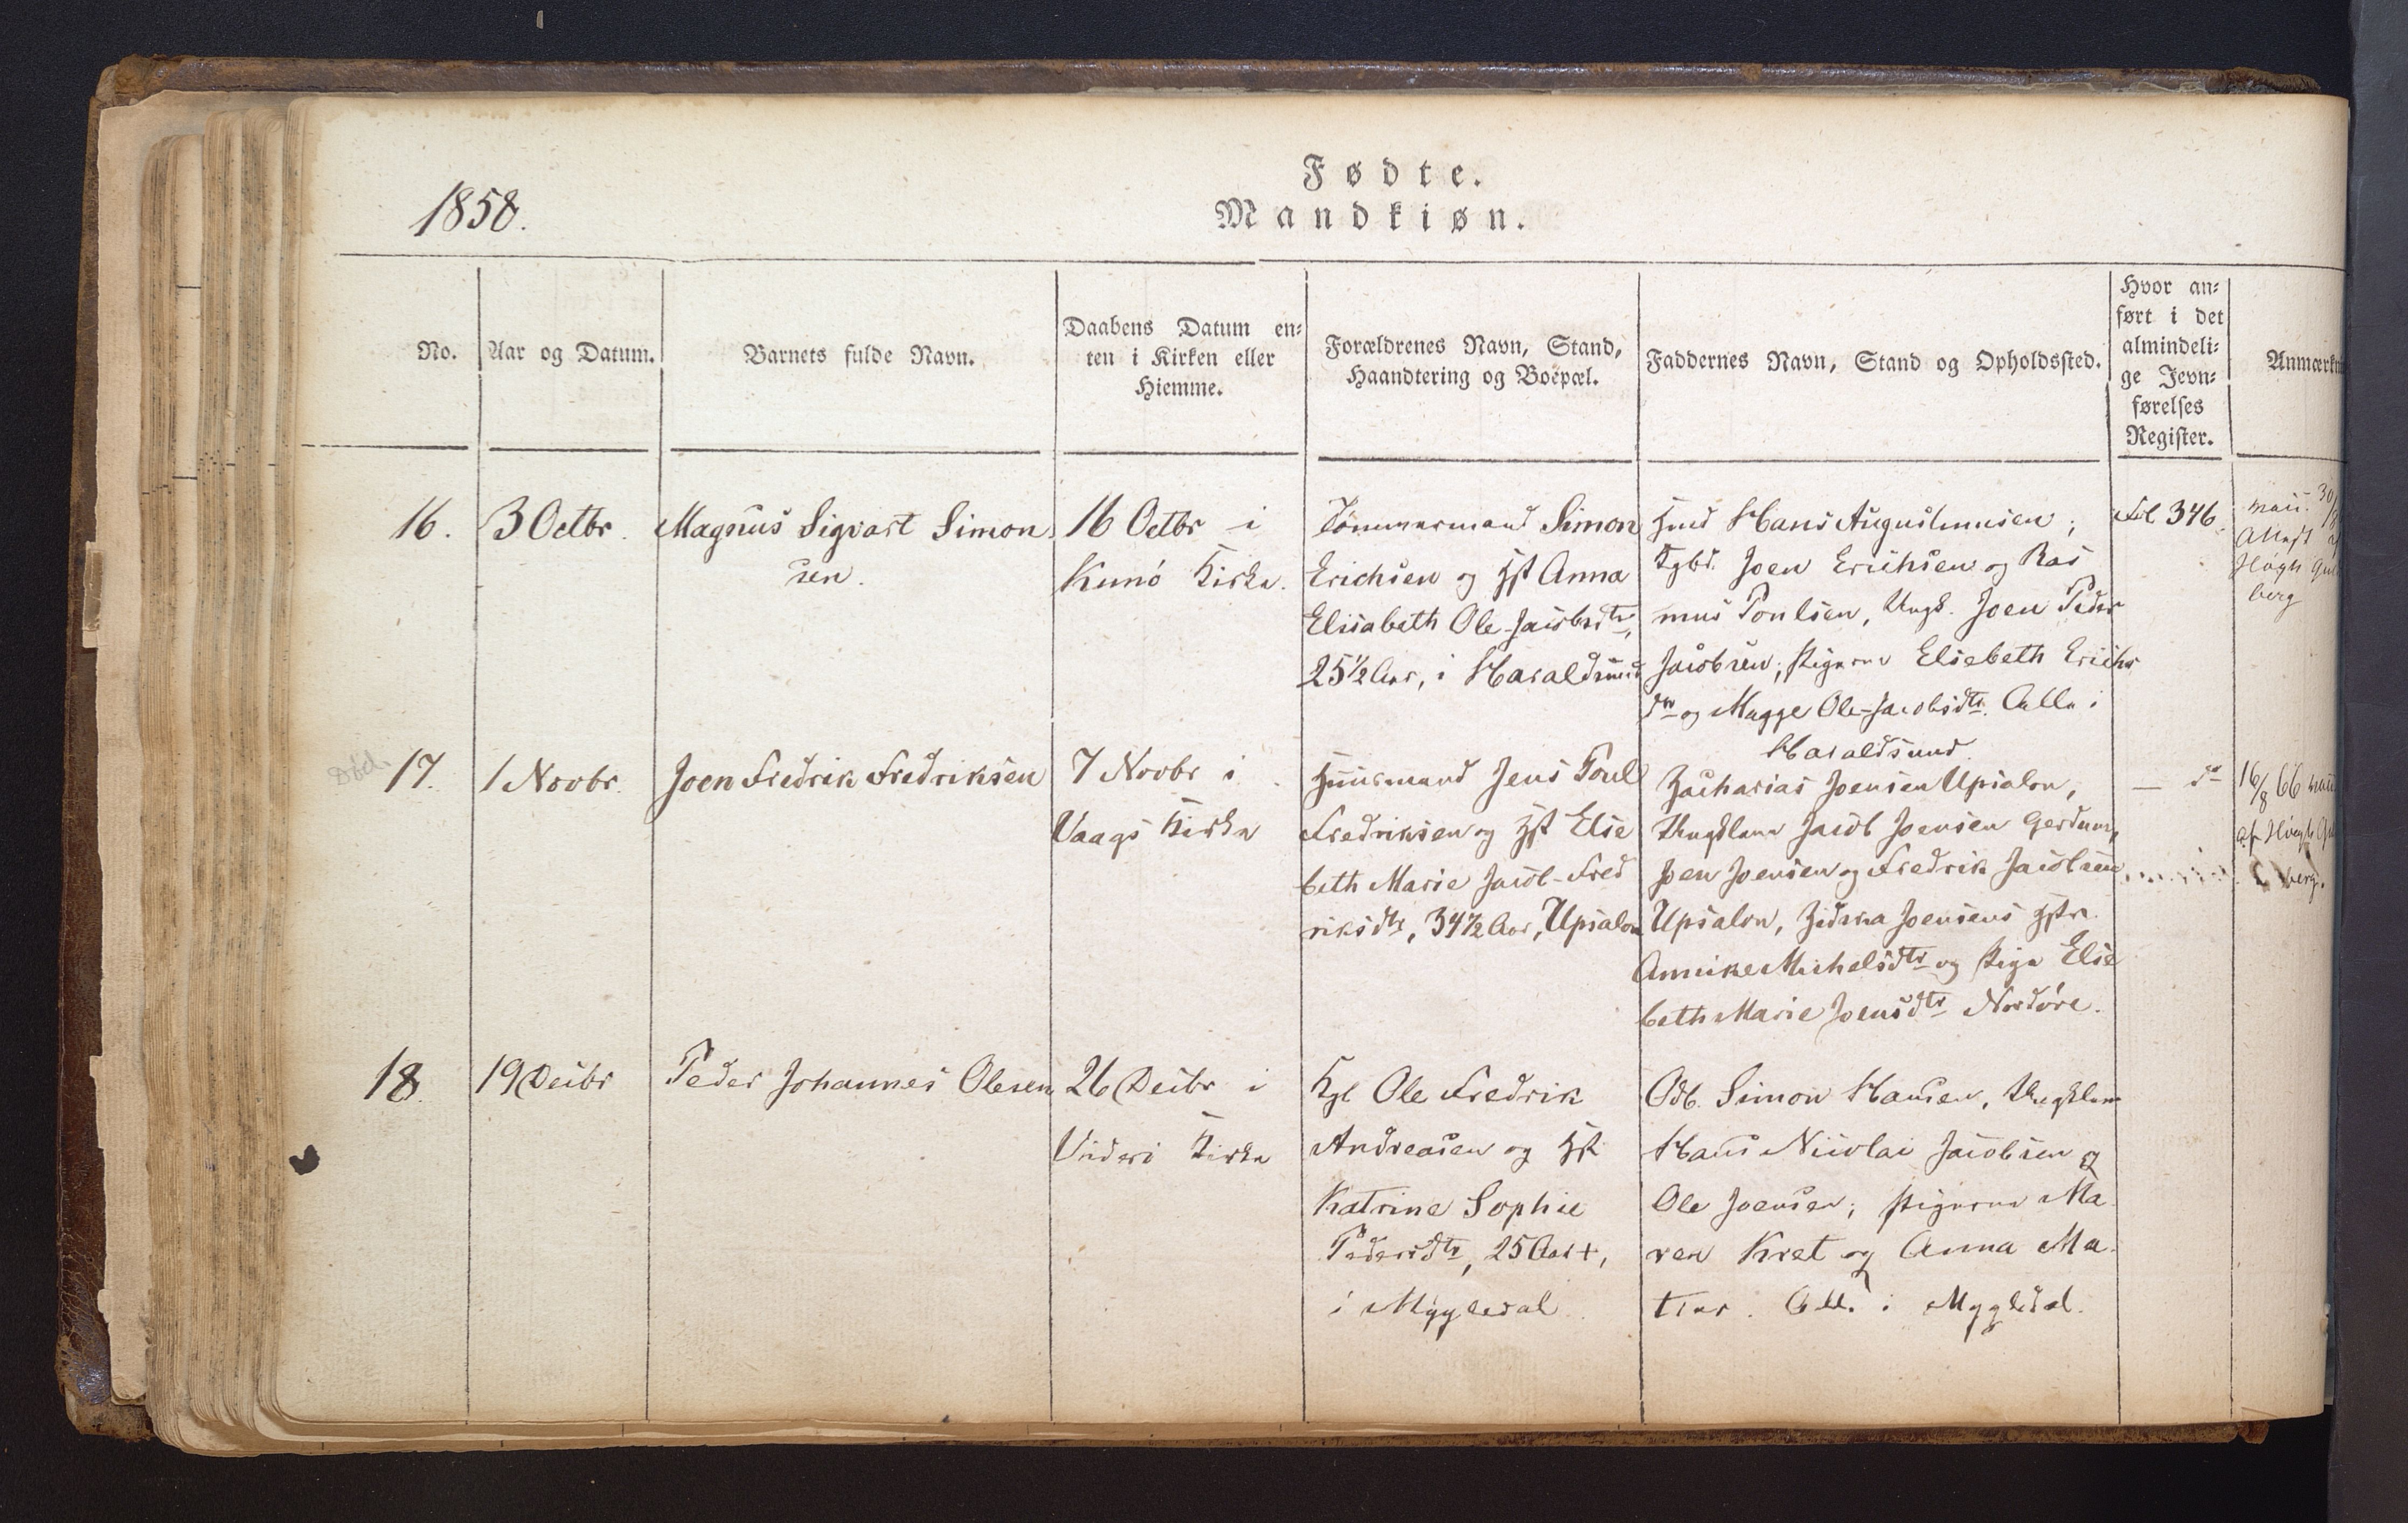 1858.
Fødte.
Mandkiøn.
No.
Aar og Datum.
Barnets fulde Navn.
Daabens Datum en-
ten i Kirken eller
Hiemme.
Forældrenes Navn, Stand,
Haandtering og Boepæl.
Faddernes Navn, Stand og Opholdssted.
Hvor an-
ført i det
almindeli-
ge Jevn-
førelses
Register.
Anmærkn
16.
3 Octbr.
Magnus Sigvart Simon
sen.
16 Octbr i
Kunö Kirke.
Tömmermand Simon
Erichsen og Hst Anna
Elisabeth Ole-Jacobsdtr,
25½ Aar, i Haraldsund
Hmd Hans Augustinusen;
Kgbd. Joen Erichsen og Ras
mus Poulsen, Ungk. Joen Peder
Jacobsen; Pigerne Elsebeth Erichs
dtr og Magge Ole-Jacobsdtr. Alle i
Haraldsund.
Fol 346.
Attest
Høgh Gul
berg
17.
1 Novbr.
Joen Fredrik Fredriksen
7 Novbr i
Vaags Kirke
Huusmand Jens Poul
Fredriksen og Hst Else
beth Marie Jacob-Fred
riksdtr, 34½ Aar, Upsalon
Zacharias Joensen Upsalon,
Ungklne Jacob Joensen Gerdum,
Joen Joensen og Fredrik Jacobsen
Upsalon, Joensens Hstr.
Annike Michelsdtr og Pige Else
beth Marie Joensdtr Nordöre.
— do
16/8 66
af Høegh Gul
berg.
18.
19 Decbr
Peder Johannes Olesen
26 Decbr i
Viderö Kirke
Kgb Ole Fredrik
Andreasen og Hst
Katrine Sophie
Pedersdtr, 25 Aar +,
i Mygledal
Odb. Simon Hansen, Ungklne
Hans Nicolai Jacobsen og
Ole Joensen; Pigerne Ma
ren Kret og Anna Ma
Alle i Mygledal.